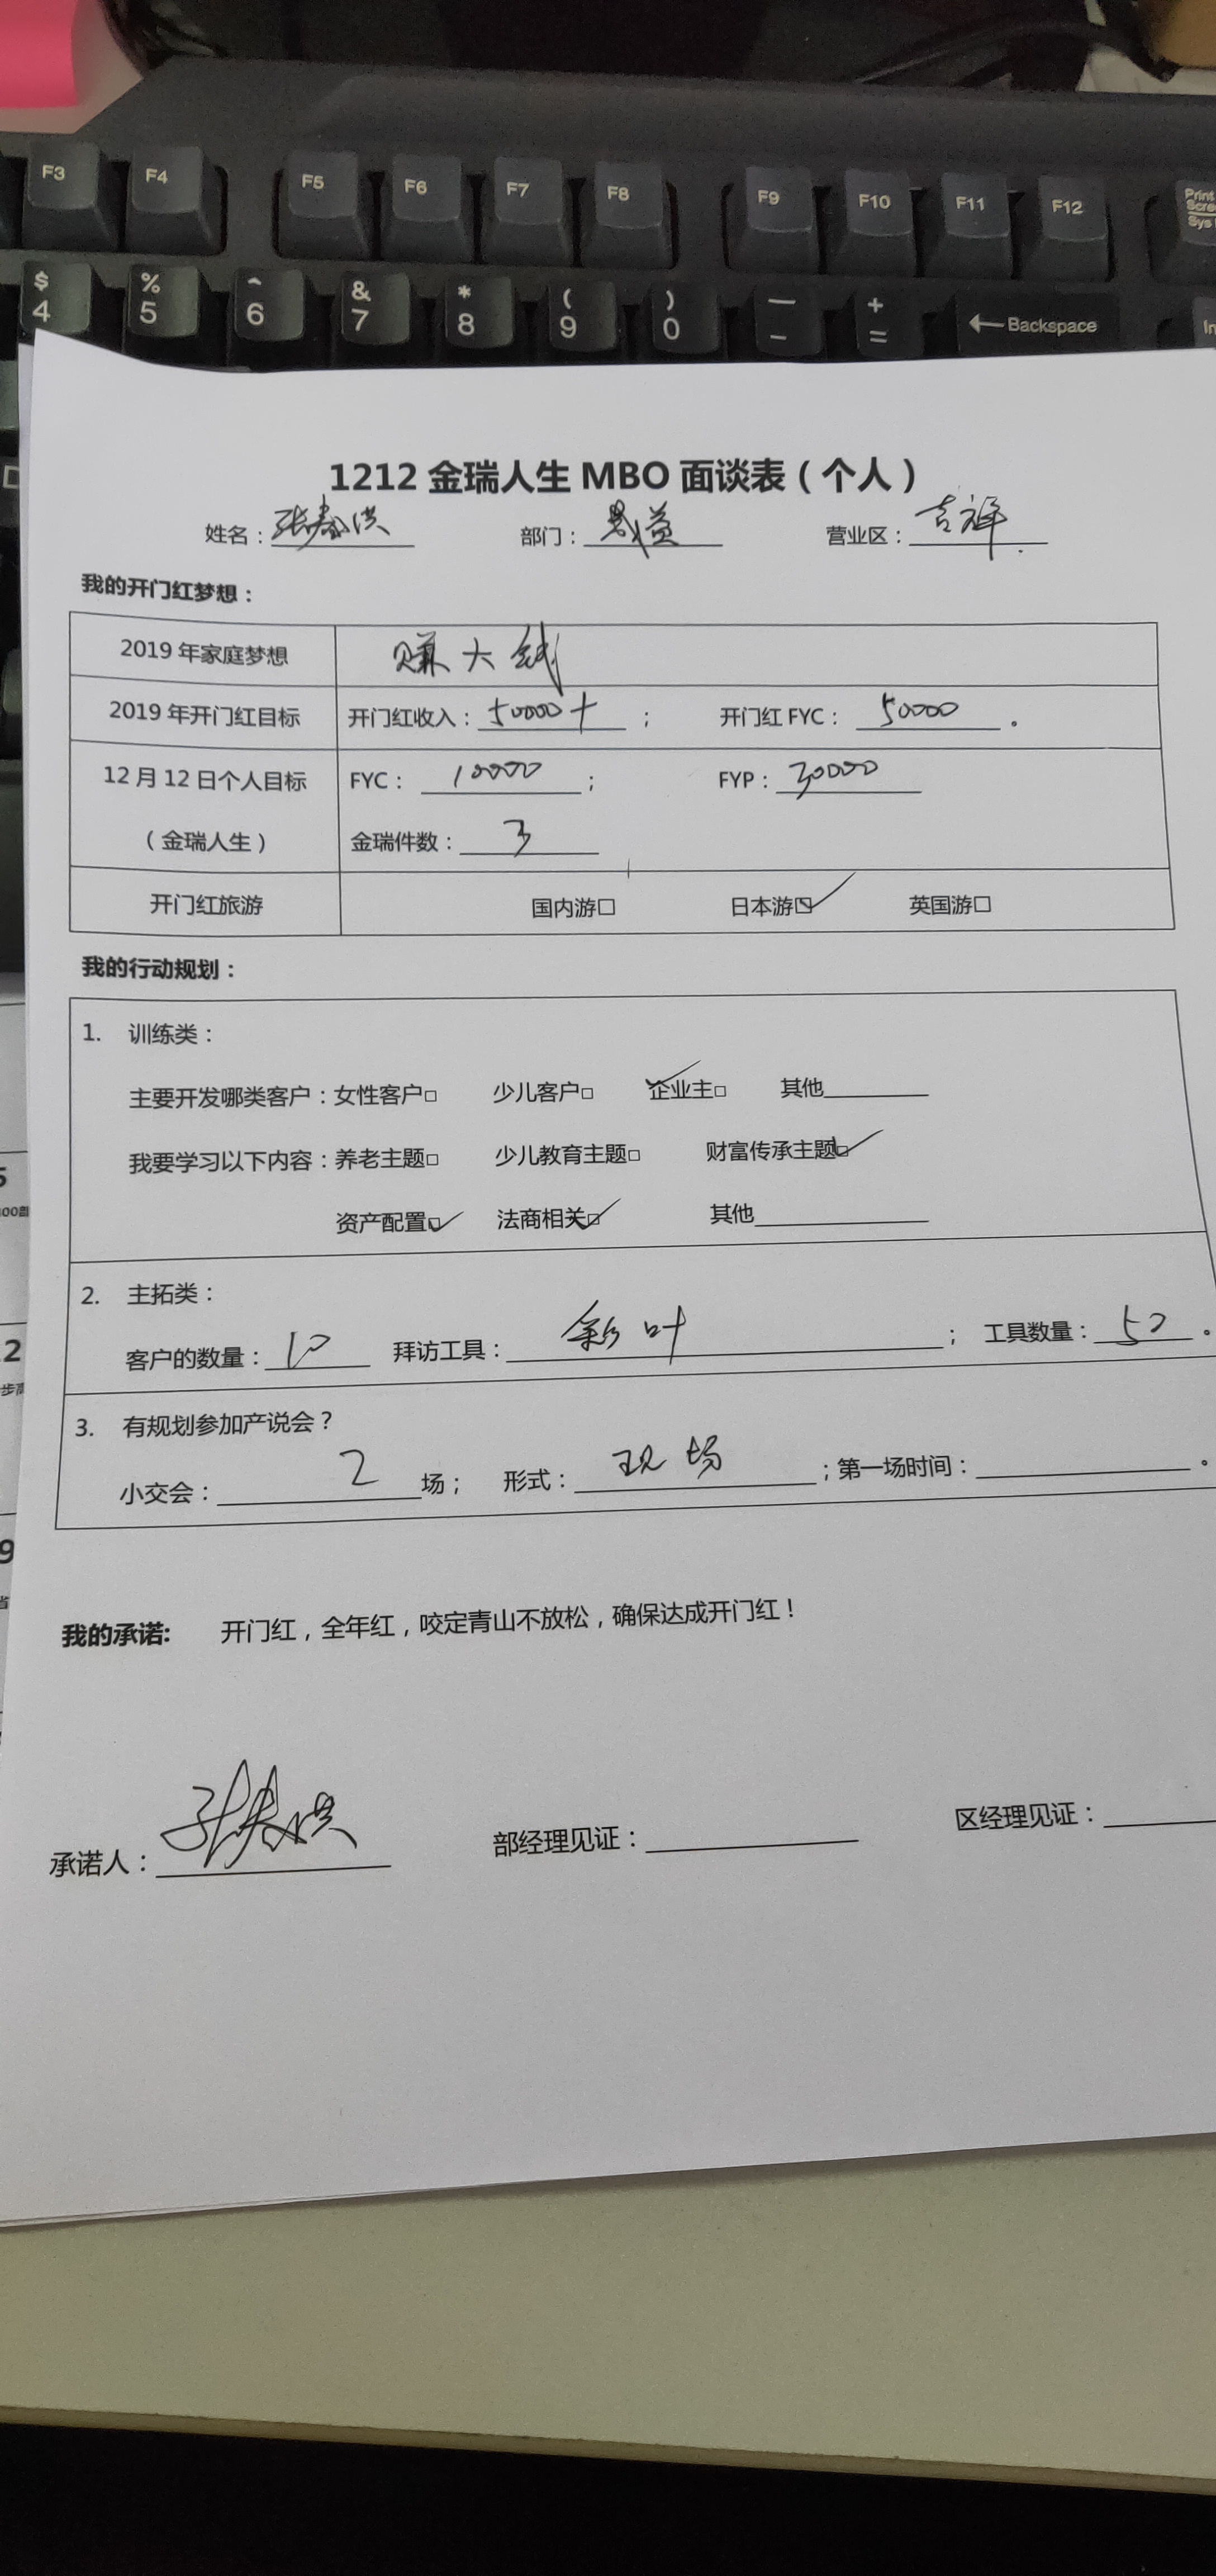 F3 F4 F5 F6 F7 F8 F9 F10 F11 F12 Print
Sys
$ % ^ & * ( ) — +
4 5 6 7 8 9 0 - = Backspace In
D
1212 金瑞人生 MBO 面谈表（个人）
姓名：张春洪 部门： 营业区：吉祥
我的开门红梦想：
2019 年家庭梦想 赚大钱
2019 年开门红目标 开门红收入：50000+； 开门红 FYC：50000。
12 月 12 日个人目标 FYC：10000； FYP：30000
（金瑞人生） 金瑞件数：3
开门红旅游 国内游□ 日本游☑ 英国游□
我的行动规划：
1. 训练类：
主要开发哪类客户：女性客户□ 少儿客户□ 企业主□✓ 其他
我要学习以下内容：养老主题□ 少儿教育主题□ 财富传承主题☑
资产配置☑ 法商相关☑ 其他
2. 主拓类：
客户的数量：10 拜访工具：彩叶； 工具数量：50。
3. 有规划参加产说会？
小交会：2场； 形式：现场；第一场时间：。
我的承诺: 开门红，全年红，咬定青山不放松，确保达成开门红！
承诺人：张春洪 部经理见证： 区经理见证：